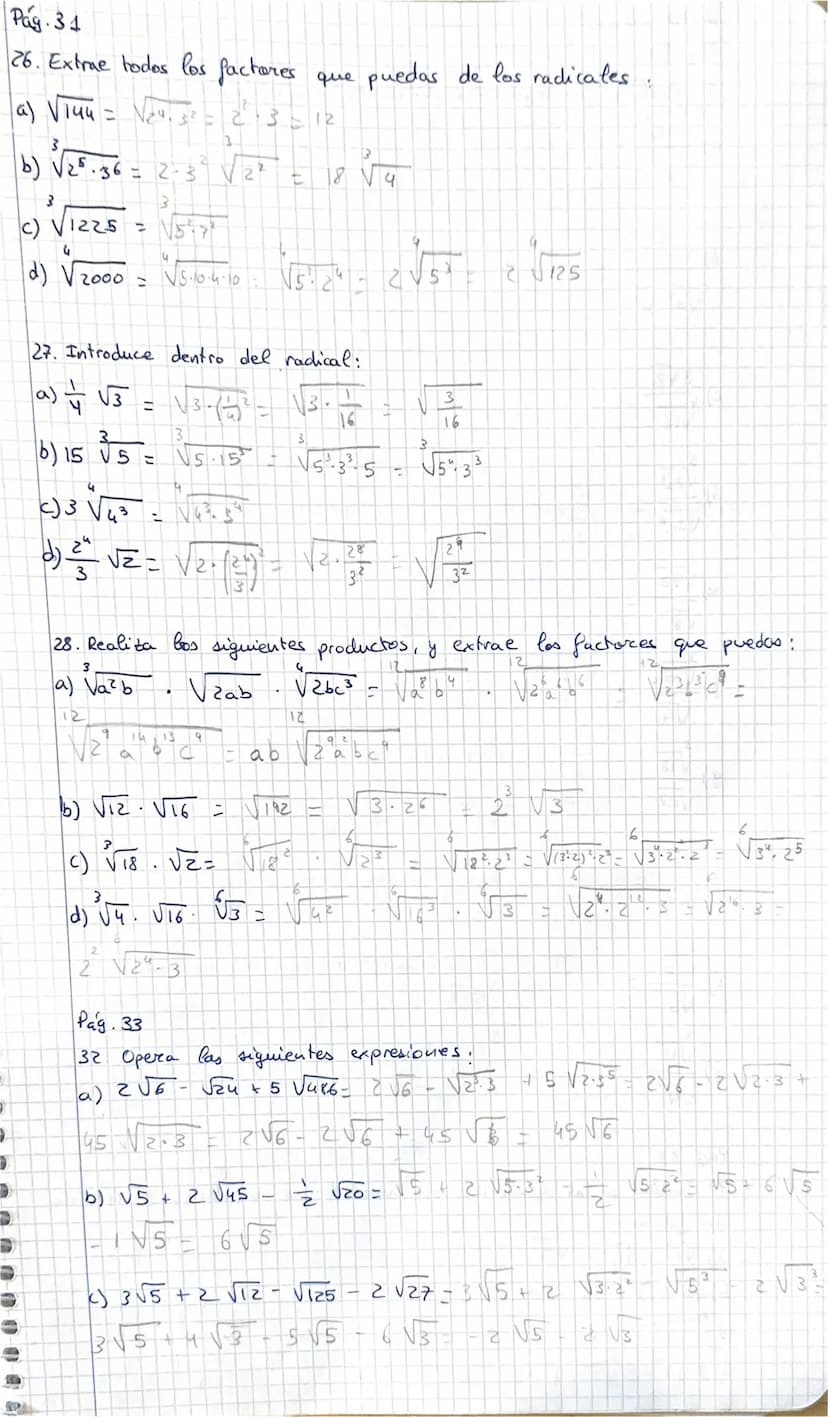 Pág. 31
26. Extrae todos los factores que puedas de los radicales:
a) √144 = √(2⁴·3²) = 2²·3 = 12
b) ³√(2⁵·3⁶) = 2·3² ³√(2²) = 18 ³√4
c) ³√1225 = ³√(5²·7²)
d) ⁴√2000 = ⁴√(5·10·4·10) = ⁴√(5³·2⁴) = 2 ⁴√(5³) = 2 ⁴√125
27. Introduce dentro del radical:
a) 1/4 √3 = √(3·(1/4)²) = √(3·1/16) = √(3/16)
b) 15 ³√5 = ³√(5·15³) = ³√(5³·3³·5) = ³√(5⁴·3³)
c) 3 ⁴√(4³) = ⁴√(4³·3⁴)
d) 2⁴/3 √2 = √(2·(2⁴/3)²) = √(2·2⁸/3²) = √(2⁹/3²)
28. Realiza los siguientes productos, y extrae los factores que puedas:
a) ³√(a²b) · √(2ab) · ⁴√(2bc³) = ¹²√(a⁸b⁴) · ¹²√(2⁶a⁶b⁶) · ¹²√(2³b³c⁹) =
¹²√(2⁹a¹⁴b¹³c⁹) = ab ¹²√(2⁹a²bc⁹)
b) √12 · √16 = √192 = √(3·2⁶) = 2³ √3
c) ³√18 · √2 = ⁶√(18²) · ⁶√(2³) = ⁶√(18²·2³) = ⁶√((3²·2)²·2³) = ⁶√(3⁴·2²·2³) = ⁶√(3⁴·2⁵)
d) ³√4 · √16 · ⁶√3 = ⁶√(4²) · ⁶√(16³) · ⁶√3 = ⁶√(2⁴·2¹²·3) = ⁶√(2¹⁶·3) =
2² ⁶√(2⁴·3)
Pág. 33
32 Opera las siguientes expresiones:
a) 2√6 - √24 + 5√486 = 2√6 - √(2³·3) + 5√(2·3⁵) = 2√6 - 2√(2·3) +
45 √(2·3) = 2√6 - 2√6 + 45√6 = 45√6
b) √5 + 2√45 - 1/2 √20 = √5 + 2√(5·3²) - 1/2 √(5·2²) = √5 + 6√5
- 1√5 = 6√5
c) 3√5 + 2√12 - √125 - 2√27 = 3√5 + 2√(3·2²) - √(5³) - 2√(3³) =
3√5 + 4√3 - 5√5 - 6√3 = -2√5 - 2√3